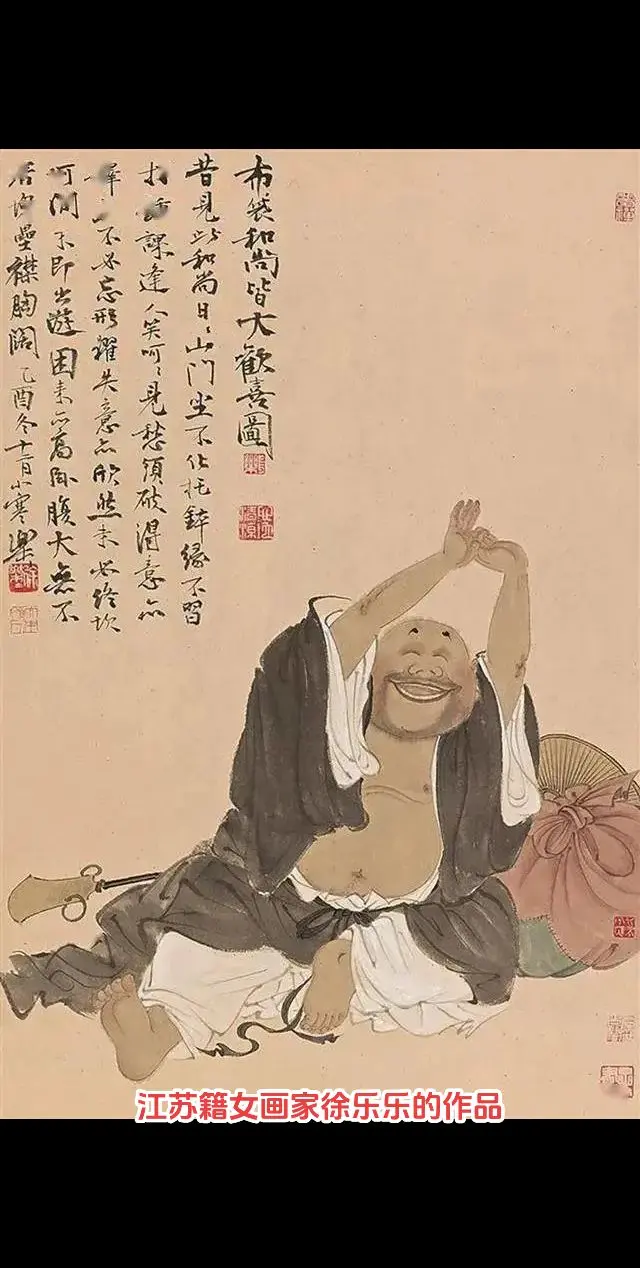 布袋和尚皆大歡喜圖
昔見此和尚日日山門坐不化托鉢緣不習
打課逢人笑呵呵見愁煩破得意亦
不必忘形躍失意亦欣然未必終坎
坷閒來即出遊困來亦高卧腹大無不
容壘襟胸闊 乙酉冬十二月小寒樂
江苏籍女画家徐乐乐的作品